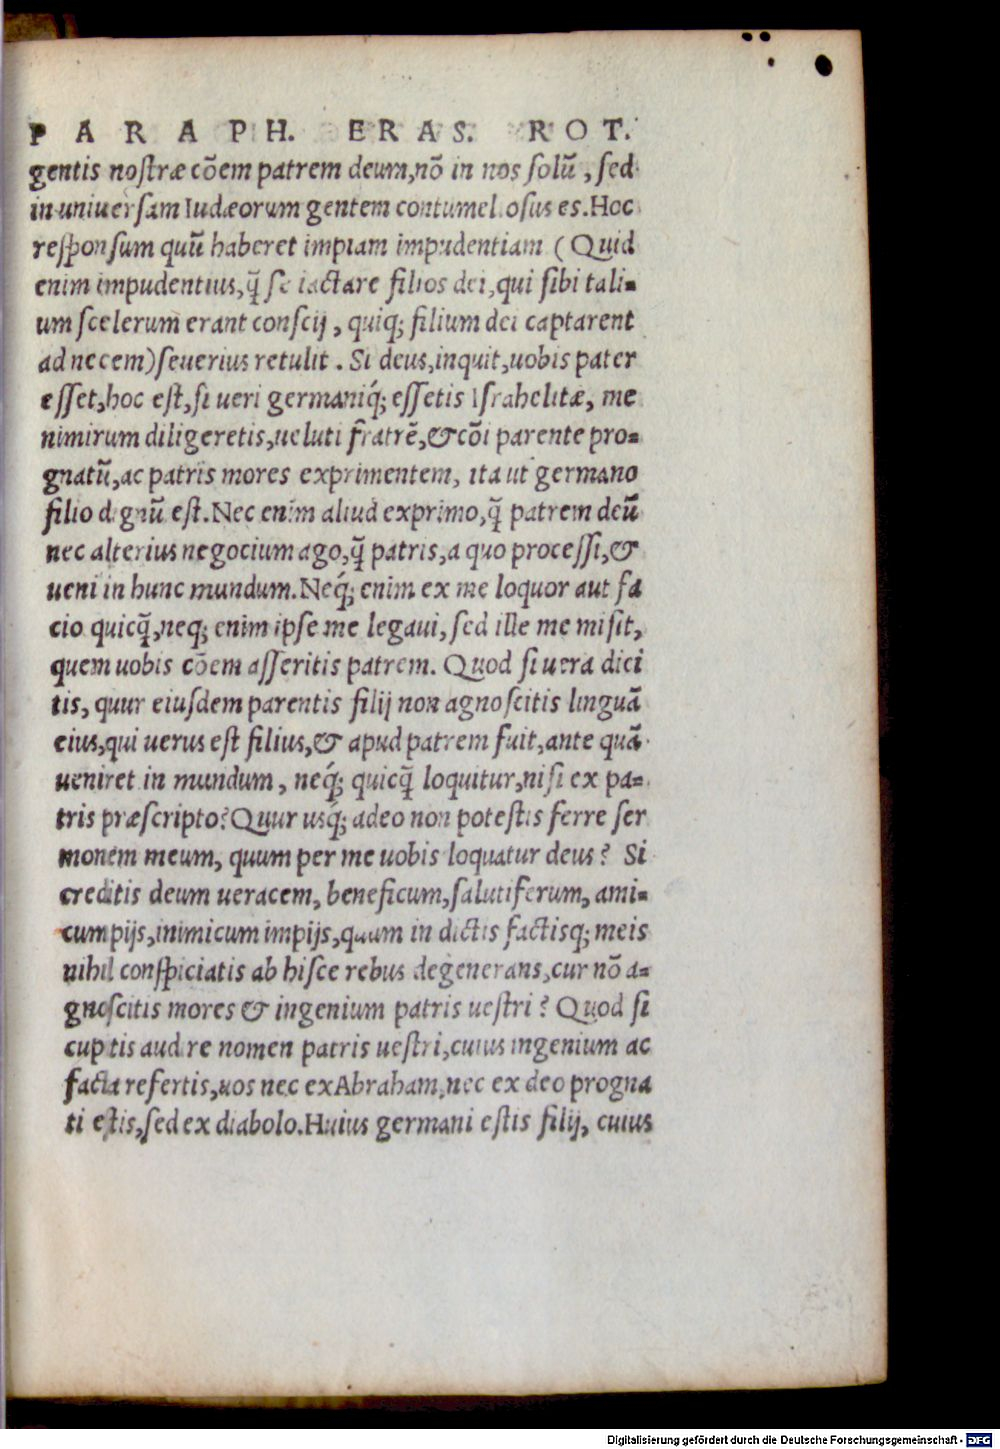 PARAPH. ERAS. ROT.
gentis nostræ cõem patrem deum, nõ in nos solũ, sed
in uniuersam Iudæorum gentem contumeliosus es. Hoc
responsum quũ haberet impiam impudentiam (Quid
enim impudentius, q̃ se iactare filios dei, qui sibi tali=
um scelerum erant conscij, quiq; filium dei captarent
ad necem) seuerius retulit. Si deus, inquit, uobis pater
esset, hoc est, si ueri germaniq́; essetis Israhelitæ, me
nimirum diligeretis, ueluti fratrẽ, & cõi parente pro=
gnatũ, ac patris mores exprimentem, ita ut germano
filio dignũ est. Nec enim aliud exprimo, q̃ patrem deũ
nec alterius negocium ago, q̃ patris, a quo processi, &
ueni in hunc mundum. Neq́; enim ex me loquor aut fa
cio quicq̃, neq; enim ipse me legaui, sed ille me misit,
quem uobis cõem asseritis patrem. Quod si uera dici
tis, quur eiusdem parentis filij non agnoscitis linguã
eius, qui uerus est filius, & apud patrem fuit, ante quã
ueniret in mundum, neq́; quicq̃ loquitur, nisi ex pa=
tris præscripto? Quur usq́; adeo non potestis ferre ser
monem meum, quum per me uobis loquatur deus? Si
creditis deum ueracem, beneficum, salutiferum, ami=
cum pijs, inimicum impijs, quum in dictis factisq; meis
nihil conspiciatis ab hisce rebus degenerans, cur nõ a=
gnoscitis mores & ingenium patris uestri? Quod si
cupitis audire nomen patris uestri, cuius ingenium ac
facta refertis, uos nec ex Abraham, nec ex deo progna
ti estis, sed ex diabolo. Huius germani estis filij, cuius
Digitalisierung gefördert durch die Deutsche Forschungsgemeinschaft - DFG